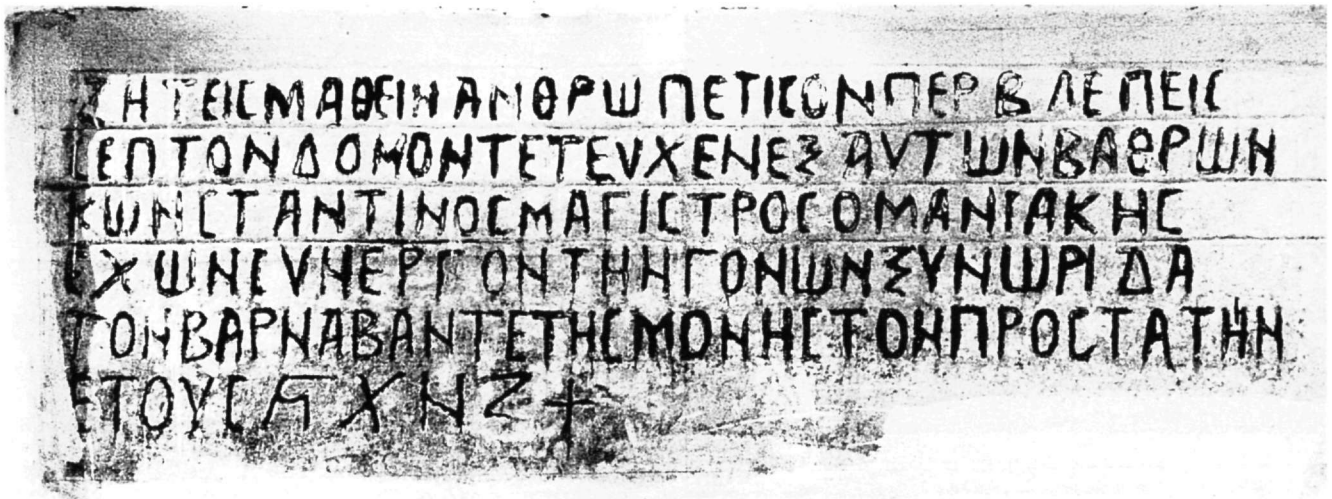 ΖΗΤΕΙϹΜΑΘΕΙΝΑΝΘΡΩΠΕΤΙϹΟΝΠΕΡΒΛΕΠΕΙϹ
ϹΕΠΤΟΝΔΟΜΟΝΤΕΤΕΥΧΕΝΕΞΑΥΤΩΝΒΑΘΡΩΝ
ΚΩΝϹΤΑΝΤΙΝΟϹΜΑΓΙϹΤΡΟϹΟΜΑΝΙΑΚΗϹ
ΕΧΩΝϹΥΝΕΡΓΟΝΤΗΝΓΟΝΩΝΞΥΝΩΡΙΔΑ
ΤΟΝΒΑΡΝΑΒΑΝΤΕΤΗϹΜΟΝΗϹΤΟΝΠΡΟϹΤΑΤΗΝ
ΕΤΟΥϹϚΧΝΖ+